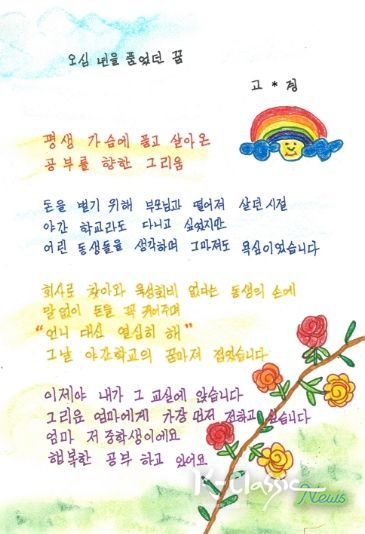 오십 년을 품었던 꿈
고 * 정
평생 가슴에 품고 살아온
공부를 향한 그리움
돈을 벌기 위해 부모님과 떨어져 살던 시절
야간 학교라도 다니고 싶었지만
어린 동생들을 생각하며 그마저도 욕심이었습니다
회사로 찾아와 육성회비 없다는 동생의 손에
말없이 돈을 꼭 쥐어주며
"언니 대신 열심히 해"
그날 야간학교의 꿈마저 접었습니다
이제야 내가 그 교실에 앉습니다
그리운 엄마에게 가장 먼저 전하고 싶습니다
엄마 저 중학생이에요
행복한 공부 하고 있어요
K-classic
News